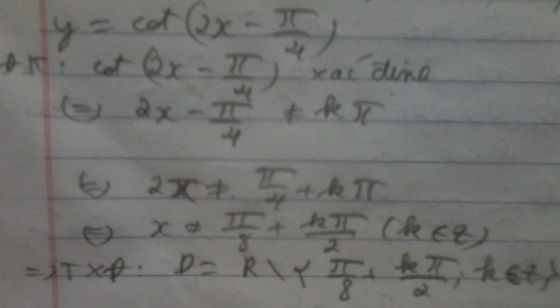 y = cot(2x - π/4)
ĐK: cot(2x - π/4) xác định
(=) 2x - π/4 ≠ kπ
(=) 2x ≠ π/4 + kπ
(=) x ≠ π/8 + kπ/2 (k ∈ Z)
=> TXĐ: D = R \ { π/8 + kπ/2, k ∈ Z }